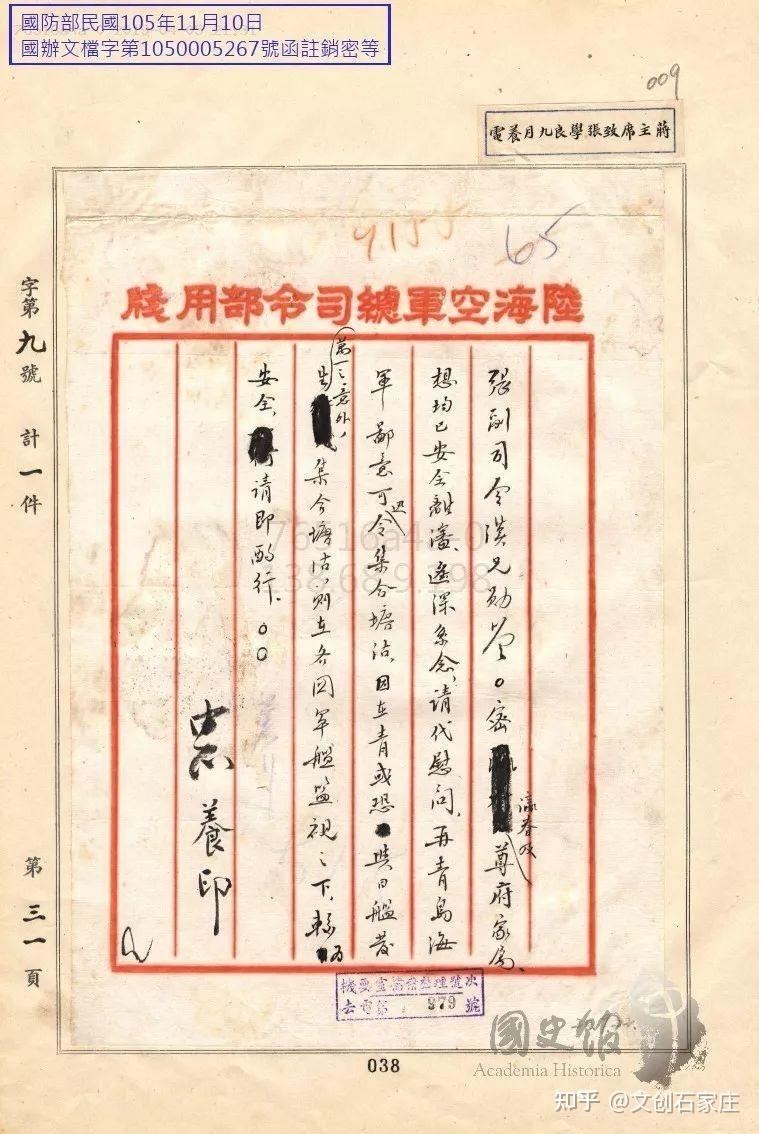 國防部民國105年11月10日
國辦文檔字第1050005267號函註銷密等
009
蔣主席致張學良九月養電
4155
65
陸海空軍總司令部用牋
張副司令漢兄勛鑒。密
瀛春及
尊府家屬、
想均已安全離瀋、遙深系念、請代慰問、再青島海
軍鄙意可
迅
令集合塘沽、因在青或恐與日艦發
生
萬一之意外，
集合塘沽、則在各國軍艦監視之下、較為
安全、請即酌行、。。
中正養印
字第九號 計一件
第三一頁
機要室檔案整理號次
去電第 379 號
038
國史館
Academia Historica
知乎 @文创石家庄